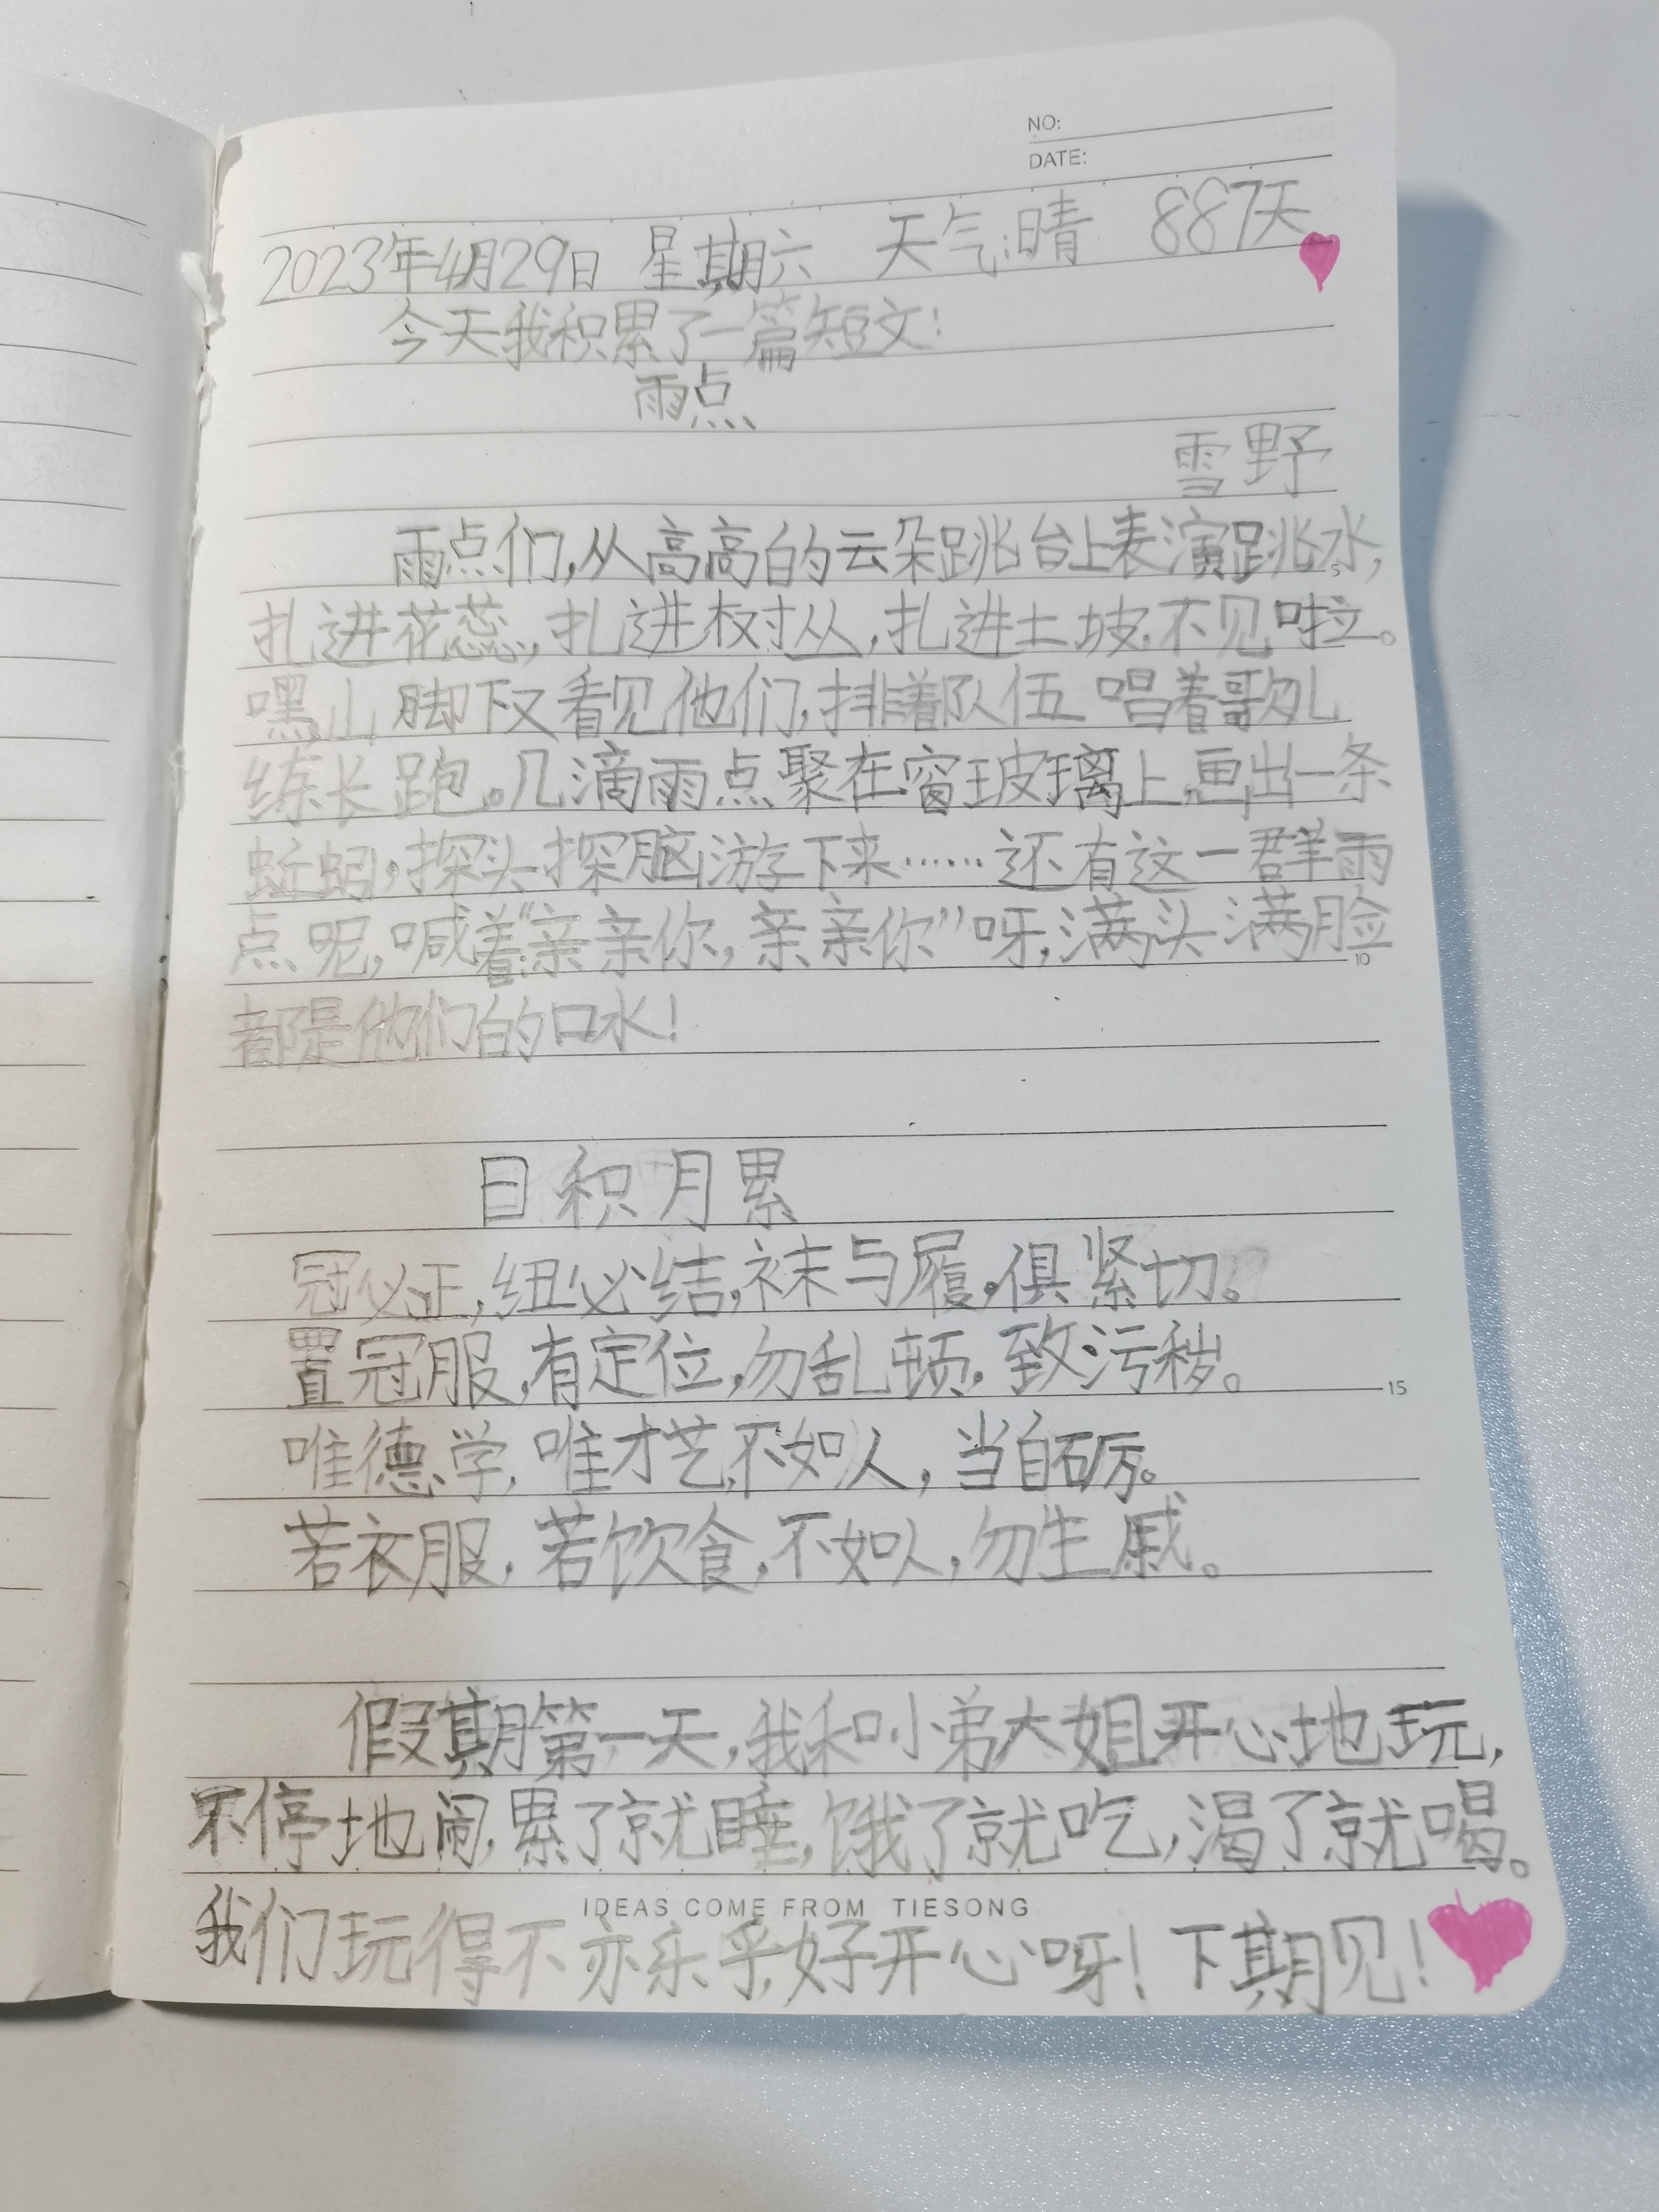 NO:
DATE:
2023年4月29日 星期六 天气:晴 887天
今天我积累了一篇短文:
雨点
雪野
雨点们,从高高的云朵跳台上表演跳水,
扎进花蕊,扎进树丛,扎进土坡,不见啦。
嘿,山脚下又看见他们,排着队伍 唱着歌儿
练长跑。几滴雨点聚在窗玻璃上,画出一条
蚯蚓,探头探脑游下来……还有这一群雨
点呢,喊着:“亲亲你,亲亲你”呀,满头满脸
都是他们的口水!
日积月累
冠必正,纽必结,袜与履,俱紧切。
置冠服,有定位,勿乱顿,致污秽。
唯德学,唯才艺,不如人,当自砺。
若衣服,若饮食,不如人,勿生戚。
假期第一天,我和小弟大姐开心地玩,
不停地闹,累了就睡,饿了就吃,渴了就喝。
IDEAS COME FROM TIESONG
我们玩得不亦乐乎,好开心呀!下期见!
5
10
15